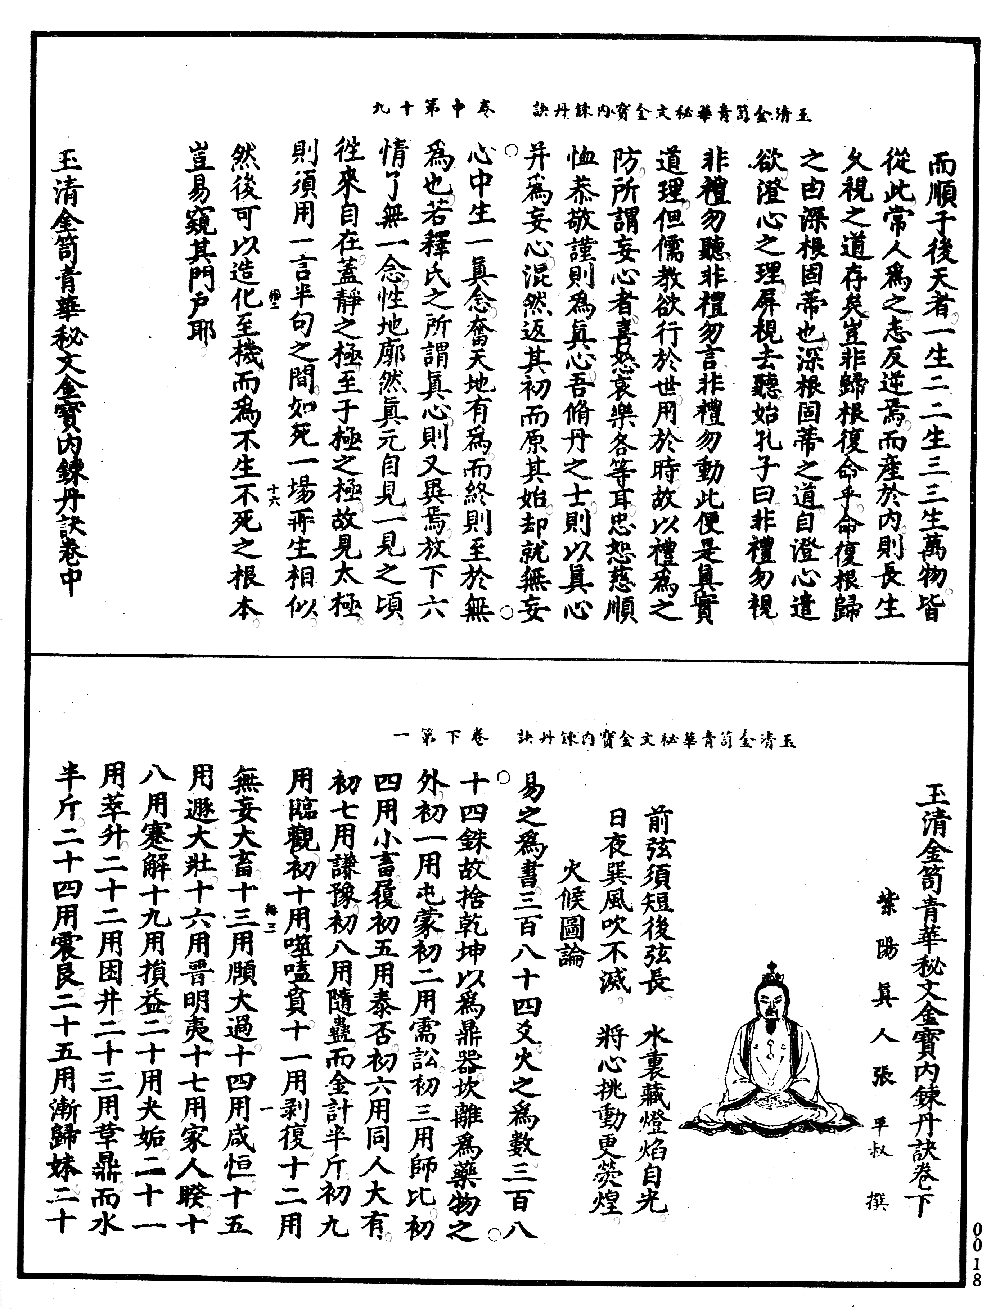 玉清金笥青華秘文金寶內鍊丹訣　卷中第十九
而順于後天者一生二二生三三生萬物皆
從此常人爲之志反逆焉而產於內則長生
久視之道存矣豈非歸根復命乎命復根歸
之由深根固蒂也深根固蒂之道自澄心遣
欲澄心之理屏視去聽始孔子曰非禮勿視
非禮勿聽非禮勿言非禮勿動此便是眞實
道理但儒教欲行於世用於時故以禮爲之
防所謂妄心者喜怒哀樂各等耳忠恕慈順
恤恭敬謹則爲眞心吾脩丹之士則以眞心
并爲妄心混然返其初而原其始却就無妄
心中生一眞念奮天地有爲而終則至於無
爲也若釋氏之所謂眞心則又異焉放下六
情了無一念性地廓然眞元自見一見之頃
徃來自在蓋靜之極至于極之極故見太極
則須用一言半句之間如死一場再生相似
然後可以造化至機而爲不生不死之根本
豈易窺其門戸耶
十六
玉清金笥青華秘文金寶內鍊丹訣卷中
玉清金笥青華秘文金寶內鍊丹訣　卷下第一
玉清金笥青華秘文金寶內鍊丹訣卷下
紫陽眞人張平叔　撰
前弦須短後弦長　水裏藏燈焰自光
日夜巽風吹不滅　將心挑動更熒煌
火候圖論
易之爲書三百八十四爻火之爲數三百八
十四銖故捨乾坤以爲鼎器坎離爲藥物之
外初一用屯蒙初二用需訟初三用師比初
四用小畜履初五用泰否初六用同人大有
初七用謙豫初八用隨蠱而金計半斤初九
用臨觀初十用噬嗑賁十一用剥復十二用
無妄大畜十三用頤大過十四用咸恒十五
用遯大壯十六用晉明夷十七用家人睽十
八用蹇解十九用損益二十用夬姤二十一
用萃升二十二用困井二十三用革鼎而水
半斤二十四用震艮二十五用漸歸妹二十
一
0018